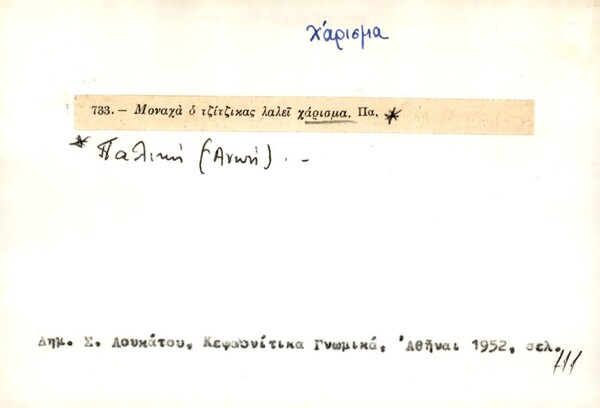 χάρισμα
733. — Μοναχὰ ὁ τζίτζικας λαλεῖ χάρισμα. Πα. *
* Παλική (Ανωή) . -
Δημ. Σ. Λουκάτου, Κεφαλονίτικα Γνωμικά, Ἀθῆναι 1952, σελ. 111